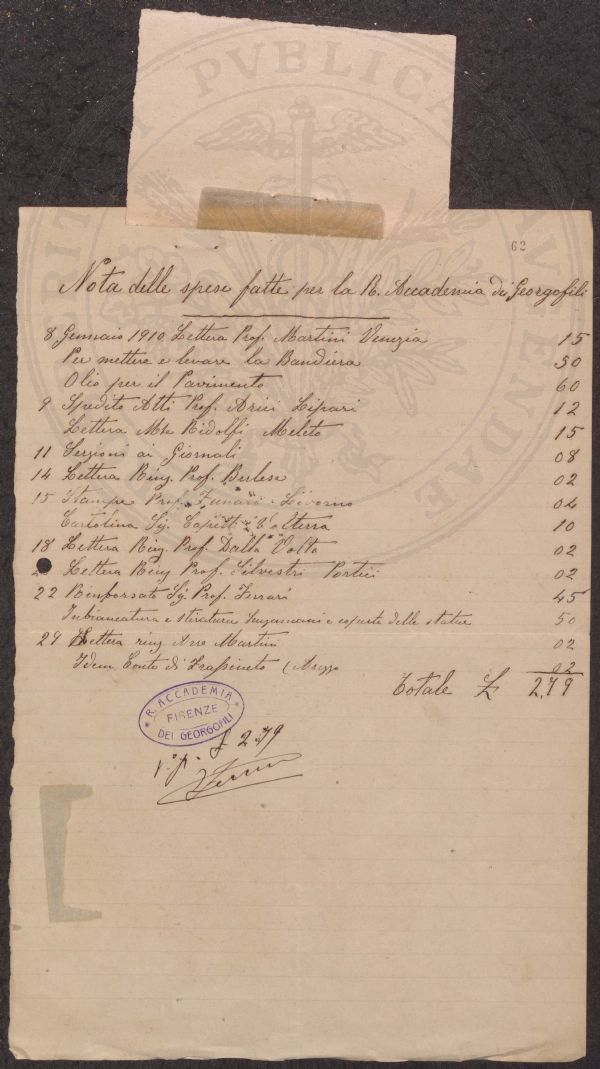 PVBLICAE
62
Nota delle spese fatte per la R. Accademia dei Georgofili
8 Gennaio 1910 Lettera Prof. Martini Venezia 15
Per mettere e levare la Bandiera 30
Olio per il Pavimento 60
9 Spedito Atti Prof. Arici Lipari 12
Lettera Mse Ridolfi Meleto 15
11 Sessioni ai Giornali 08
14 Lettera Ring. Prof. Berlese 02
15 Stampe Prof. Funaro Livorno 04
Cartolina Sig. Volterra 10
18 Lettera Ring. Prof. Dalla Volta 02
Lettera Ring Prof. Silvestri Portici 02
22 Rimborsato Sig. Prof. Ferrari 45
Imbiancatura e stiratura e coperte delle statue 50
29 Lettera ring. Martini 02
Idem Conte di Frassineto (Arezzo 02
Totale £ 2,79
R. ACCADEMIA
FIRENZE
DEI GEORGOFILI
£ 2.79